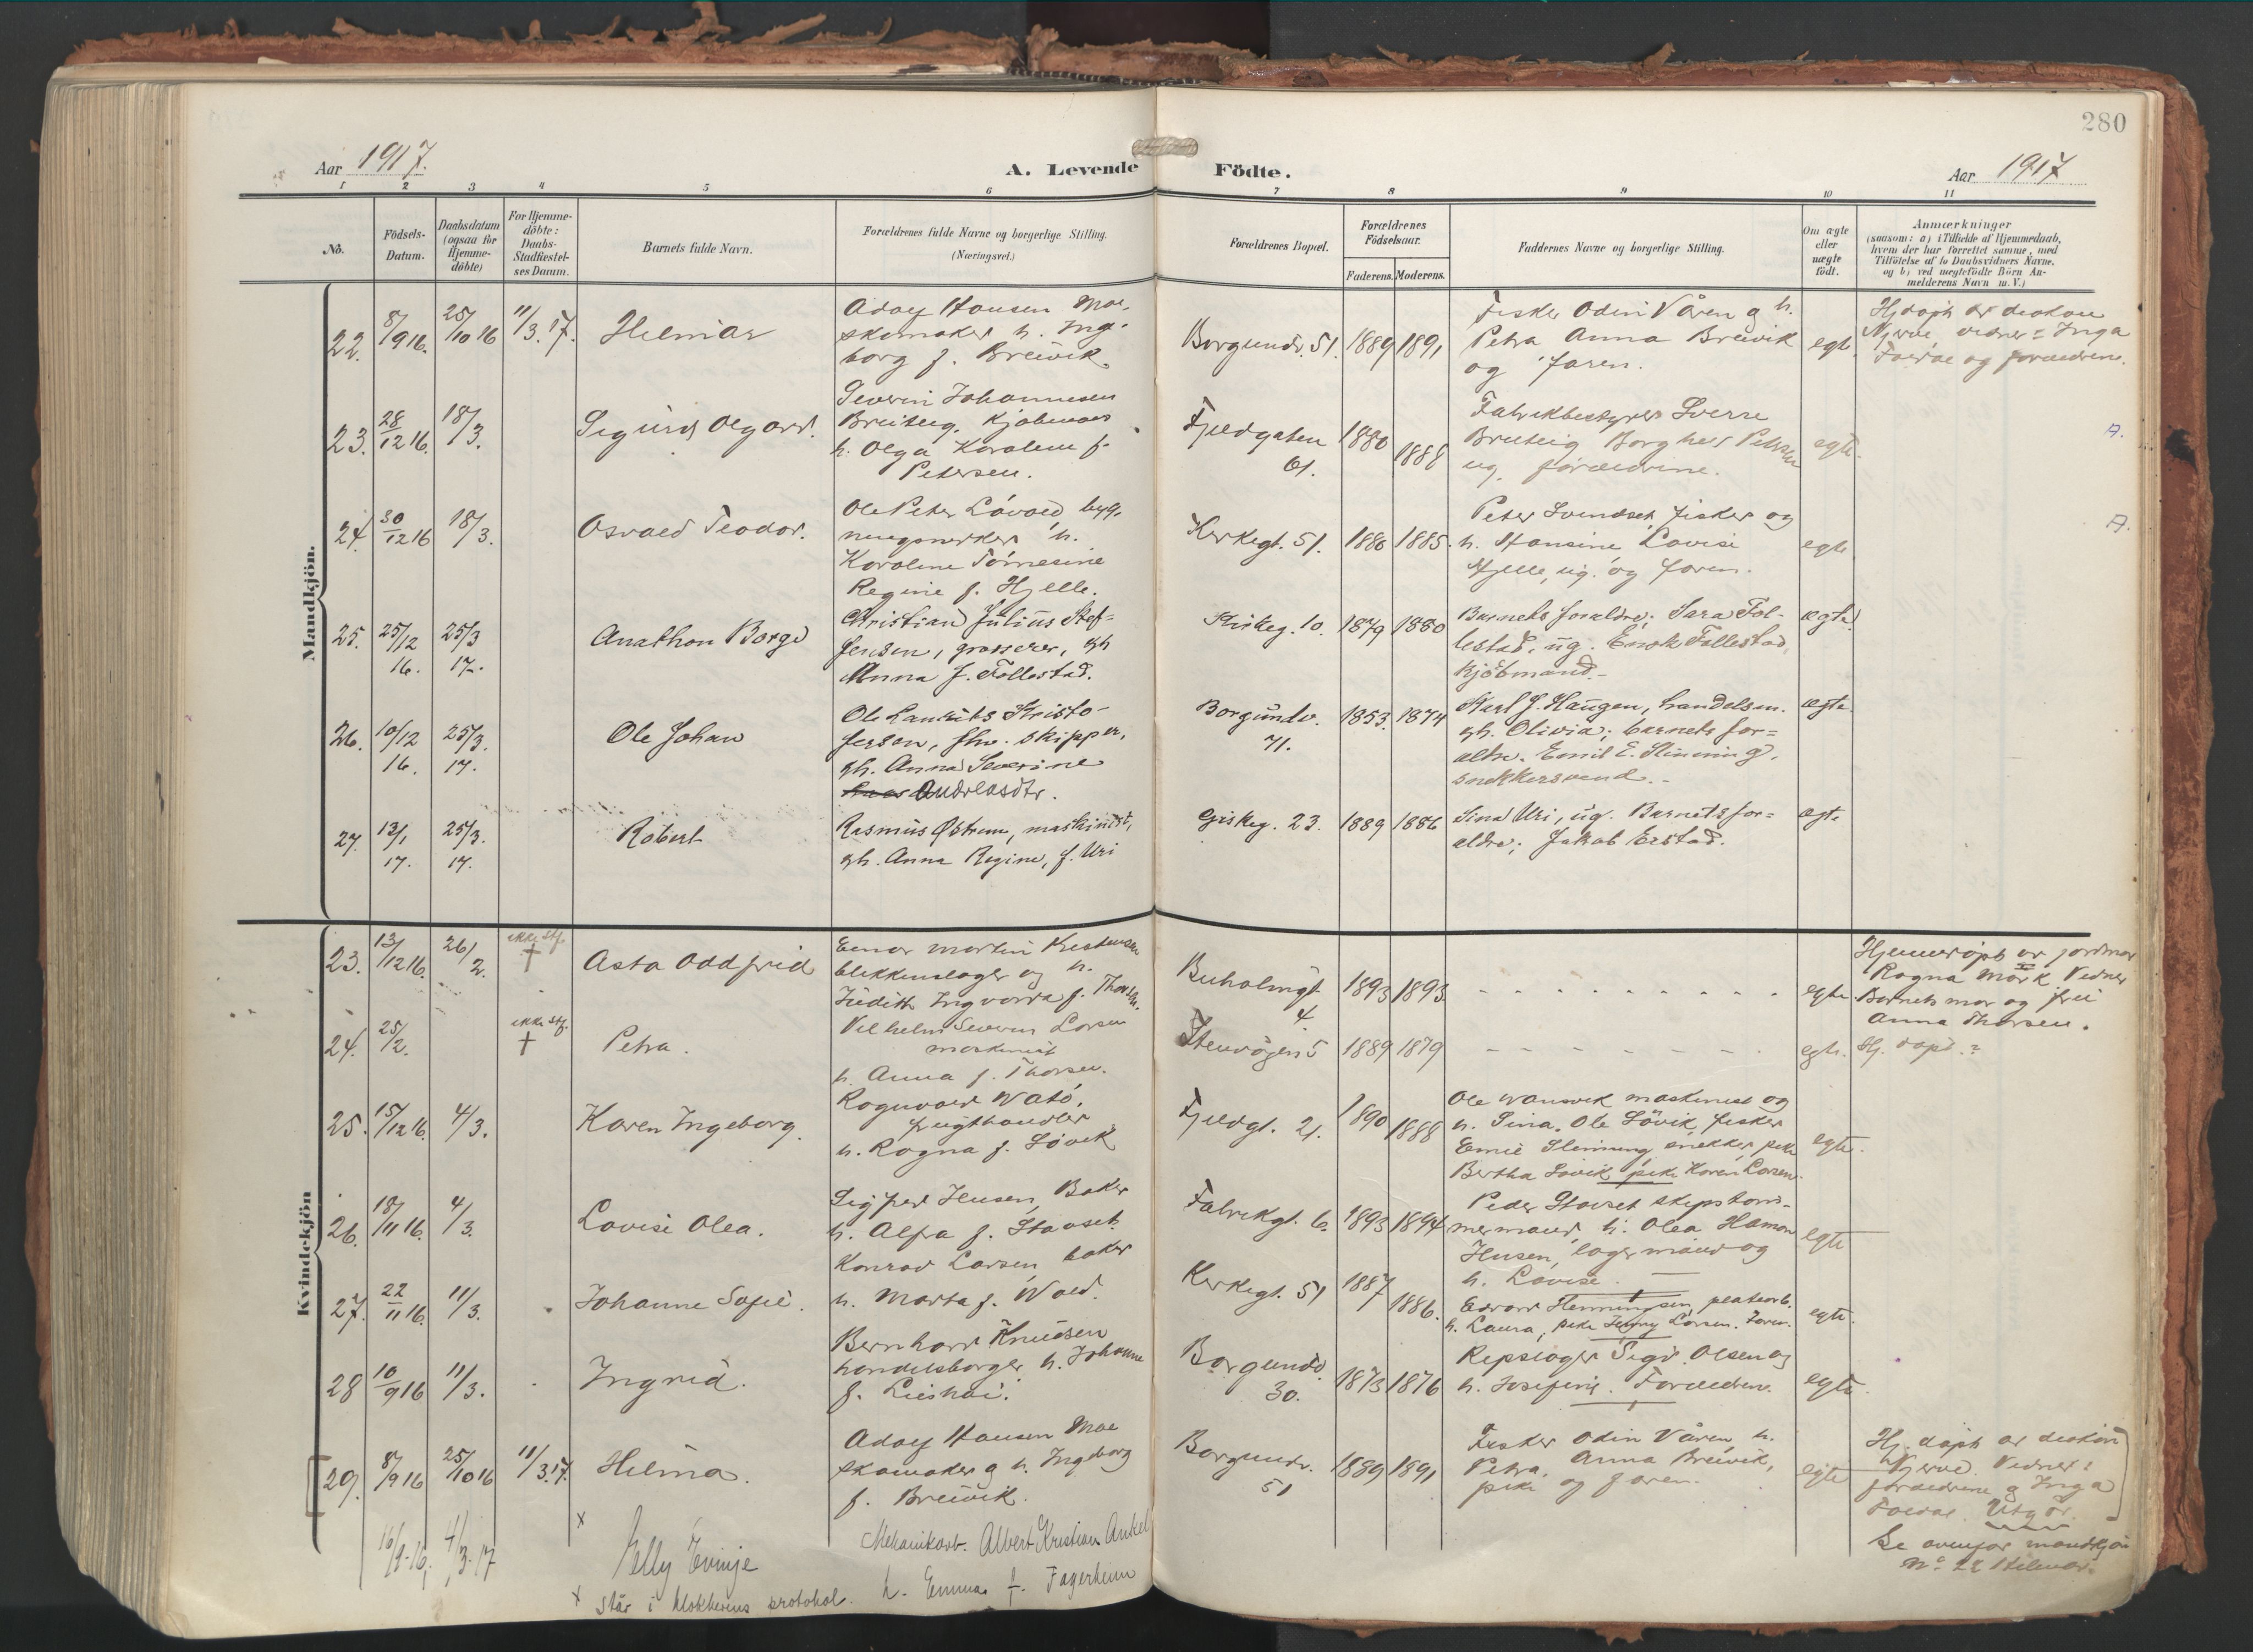 280
Aar 1917.
A. Levende Födte.
Aar 1917
1 2 3 4 5 6 7 8 9 10 11
No.
Födsels-
Datum.
Daabsdatum
(ogsaa for
Hjemme-
döbte)
For Hjemme-
döbte:
Daabs-
Stadfæstel-
ses Datum.
Barnets fulde Navn.
Forældrenes fulde Navne og borgerlige Stilling.
(Næringsvei.)
Forældrenes Bopæl.
Forældrenes
Födselsaar.
Faderens. Moderens.
Faddernes Navne og borgerlige Stilling.
Om ægte
eller
uægte
födt.
Anmærkninger
(saasom: a) i Tilfælde af Hjemmedaab,
hvem der har forrettet samme, med
Tilföielse af to Daabsvidners Navne,
og b) ved uægtefödte Börn An-
melderens Navn m. V.)
Mandkjön.
22. 8/9 16. 25/10 16 11/3.17. Hilmar
Adolf Hansen Møe
skomaker h. Inge-
borg f. Breivik.
Borgundv. 51. 1889 1891
Fisker Odin Våren g h.
Petra Anna Breivik
og faren.
egte.
Hj döpt av diakon
Njerve, vidner: Inga
Foldal og foreldrene.
23. 28/12 16. 18/3. Sigurd Olgard.
Severin Johannesen
Breiteig. Kjøbmann
h. Olga Karoline f.
Petersen.
Fjeldgaten
61.
1880 1888
Fabrikbestyrer Sverre
Breiteig Borghild Petersen
ug. foreldrene.
egte.
A.
24. 30/12 16 18/3. Osvald Teodor.
Ole Peter Løvold byg-
ningssnekker h.
Karoline Tomesine
Regine f. Hjelle.
Kirkegt. 51. 1886 1885.
Peter Svendset, fisker og
h. Hansine Lovise
Hjelle, ug. og faren.
egte
A.
25. 25/12 16. 25/3 17. Anathon Børge
Christian Julius Stef-
fensen, grosserer, gh
Anna f. Follestad.
Kirkeg. 10. 1879 1880
Barnets foraldre; Sara Fol-
lestad, ug. Enok Follestad,
kjöbmand.
ægte.
26. 10/12 16. 25/3. 17. Ole Johan
Ole Laurits Kristo-
fersen, fhv. skipper,
gh. Anna Severine
Andreasdtr.
Borgundv.
71.
1853. 1874
Karl J. Haugen, handelsm.
gh. Olivia; barnets for-
aldre. Emil E. Slinning,
snekkersvend.
ægte.
27. 13/1 17. 25/3. 17. Robert
Rasmus Østrem, maskinist,
gh. Anna Regine, f. Uri
Giskeg. 23. 1889 1886
Sina Uri, ug. Barnets for-
aldre; Jakob Erstad.
ægte
Kvindekjön
23. 13/12 16. 26/2. ikke Stf. † Asta Oddfrid
Einar Martin Kristensen
blikkenslager og h.
Judith Ingvarda f. Thorsen.
Buholmgt.
4.
1893 1893
egte.
Hjemmedöpt av jordmor
Ragna Mork. Vidner
Barnets mor og frk
Anna Thorsen.
24. 25/2. ikke Stf. † Petra.
Vilhelm Severin Larsen
maskinist
h. Anna f. Thorsen.
Stenvågen 5 1889 1879
egte. Hj. döpt.?
25. 15/12 16. 4/3. Karen Ingeborg.
Ragnvald Watö,
frugthandler
h. Ragna f. Løvik
Fjeldgt. 21. 1890 1888
Ole Wansvik maskinist og
h. Sina. Ole Lövik, fisker
Emil Slinning snekker, pike
Bertha Lövik pike Karen Larsen.
egte.
26. 18/11 16. 4/3. Lovise Olea.
Sigfred Husen, Baker
h. Alfa f. Stavset.
Fabrikgt. 6. 1893 1894
Peder Stavset skipstøm-
mermand, h. Olea Hamon
Husen, lagermand og
h. Lovise.
egte
27. 22/11 16. 11/3. Johanne Sofie.
Konrad Larsen, baker
h. Marta f. Wold.
Kirkegt. 51 1887 1886.
Edvard Henningsen, platearb.
h. Laura, pike Jenny Larsen. Faren.
egte.
28 10/9 16 11/3. Ingrid.
Bernhard Knudsen
handelsborger h. Johanne
f. Lieshei.
Borgundv.
30.
1873 1876
Repslager Sigv. Olsen og
h. Josefine. Foreldrene.
egte.
29. 8/9 16 25/10 16 11/3.17. Hilma.
Adolf Hansen Møe
skomaker g h. Ingeborg
f. Breivik.
Borgundv.
51
1889 1891
Fisker Odin Våren h.
Petra, Anna Breivik,
pike og faren.
egte
Hj. döpt av diakon
Njerve. Vidner:
foreldrene og Inga
Foldal. Utgår.
Se ovenfor mandkjøn
No 22 Hilmar.
16/9-16, 4/3-17 x Nelly Evinje
Mekanikarb. Albert Kristian Ankel
h. Emma f. Fagerheim
x står i klokkerens protokol.